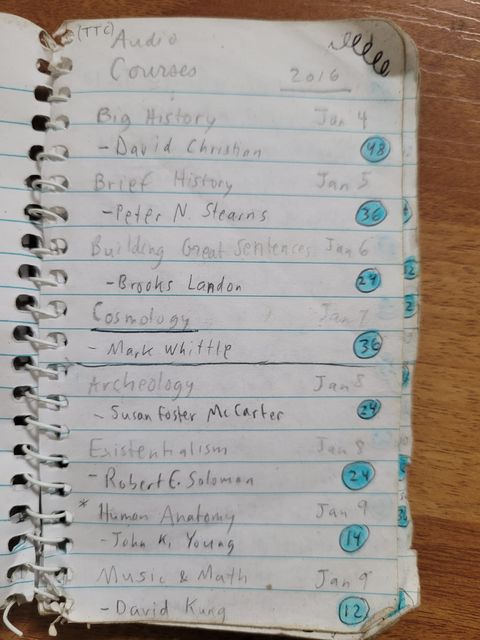 (TTC) Audio
Courses 2016
Big History Jan 4
- David Christian 48
Brief History Jan 5
- Peter N. Stearns 36
Building Great Sentences Jan 6
- Brooks Landon 24
Cosmology Jan 7
- Mark Whittle 36
Archeology Jan 8
- Susan Foster McCarter 24
Existentialism Jan 8
- Robert E. Soloman 24
* Human Anatomy Jan 9
- John K. Young 14
Music & Math Jan 9
- David Kung 12